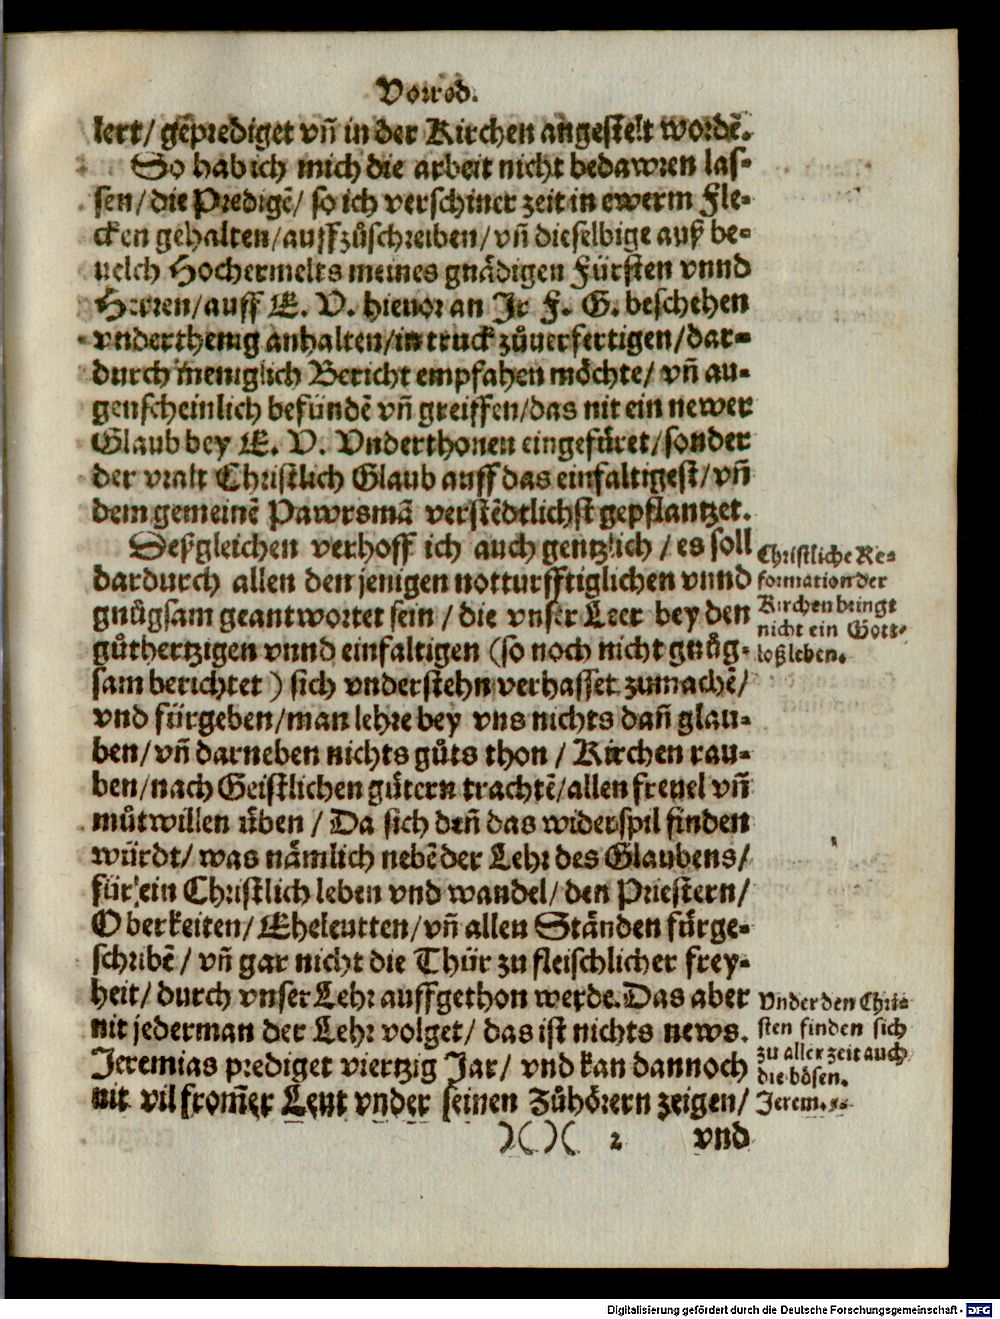 Vorred.
lert/ geprediget vñ in der Kirchen angestelt wordẽ.
So hab ich mich die arbeit nicht bedawren las-
sen/ die Predigẽ/ so ich verschiner zeit in ewerm Fle-
cken gehalten/ auffzůschreiben/ vñ dieselbige auß be-
uelch Hochermelts meines gnådigen Fürsten vnnd
Herren/ auff E. V. hieuor an Ir F. G. beschehen
vnderthenig anhalten/ in truck zůuerfertigen/ dar-
durch meniglich Bericht empfahen möchte/ vñ au-
genscheinlich befündẽ vñ greiffen/ das nit ein newer
Glaub bey E. V. Vnderthonen eingefüret/ sonder
der vralt Christlich Glaub auff das einfaltigest/ vñ
dem gemeinẽ Pawrsmã verstẽdtlichst gepflantzet.
Deßgleichen verhoff ich auch gentzlich/ es soll
dardurch allen den jenigen notturfftiglichen vnnd
gnůgsam geantwortet sein/ die vnser Leer bey den
gůthertzigen vnnd einfaltigen (so noch nicht gnůg-
sam berichtet) sich vnderstehn verhasset zumachẽ/
vnd fürgeben/ man lehre bey vns nichts dañ glau-
ben/ vñ darneben nichts gůts thon/ Kirchen rau-
ben/ nach Geistlichen gütern trachtẽ/ allen freuel vñ
můtwillen üben/ Da sich deñ das widerspil finden
würdt/ was nåmlich nebẽ der Lehr des Glaubens/
für ein Christlich leben vnd wandel/ den Priestern/
Oberkeiten/ Eheleutten/ vñ allen Stånden fürge-
schribẽ/ vñ gar nicht die Thür zu fleischlicher frey-
heit/ durch vnser Lehr auffgethon werde. Das aber
nit jederman der Lehr volget/ das ist nichts news.
Jeremias prediget viertzig Jar/ vnd kan dannoch
nit vil from̃er Leut vnder seinen Zůhörern zeigen/
)( )( 2 vnd
Christliche Re-
formation der
Kirchen bringt
nicht ein Gott-
loß leben.
Vnder den Chri-
sten finden sich
zu aller zeit auch
die bösen.
Jerem.
Digitalisierung gefördert durch die Deutsche Forschungsgemeinschaft - DFG